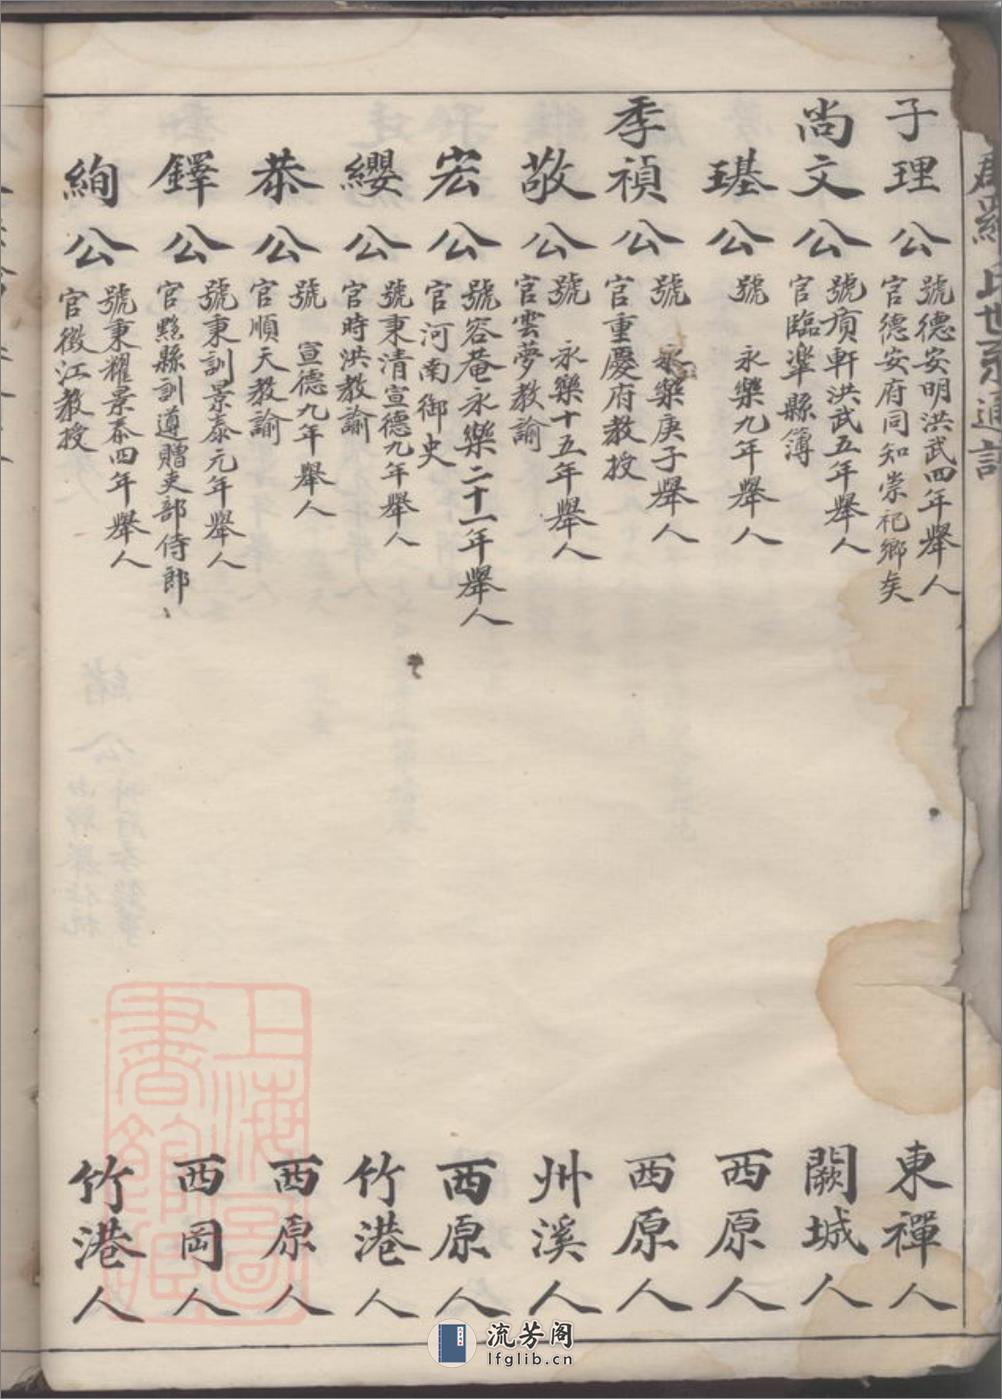 羅氏世系通譜
子理公
號德安明洪武四年舉人
官德安府同知崇祀鄉矣
東禪人
尚文公
號貭軒洪武五年舉人
官臨凖縣簿
闕城人
璂公
號 永樂九年舉人
西原人
季禎公
號 永樂庚子舉人
官重慶府教授
西原人
敬公
號 永樂十五年舉人
官雲夢教諭
州溪人
宏公
號容菴永樂二十一年舉人
官河南御史
西原人
纓公
號秉清宣德九年舉人
官時洪教諭
竹港人
恭公
號 宣德九年舉人
官順天教諭
西原人
鐸公
號秉訓景泰元年舉人
官黟縣訓遵贈吏部侍郎
西岡人
絢公
號秉耀景泰四年舉人
官徵江教授
竹港人
上海圖書館藏
流芳阁
lfglib.cn